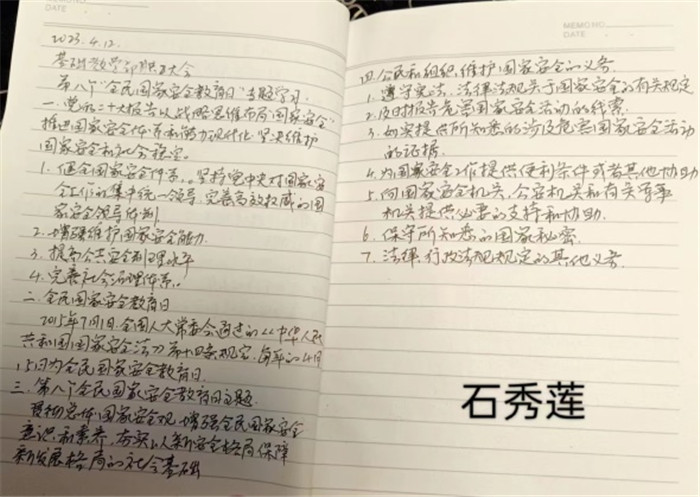 MEMO NO.
DATE
2023.4.12.
基础教学部职工大会
第八个"全民国家安全教育日"专题学习
一.党的二十大报告以战略思维布局"国家安全"
推进国家安全体系和能力现代化,坚决维护
国家安全和社会稳定。
1.健全国家安全体系。坚持党中央对国家安
全工作的集中统一领导,完善高效权威的国
家安全领导体制
2.增强维护国家安全能力.
3.提高公共安全治理水平
4.完善社会治理体系。
二.全民国家安全教育日
2015年7月1日.全国人大常委会通过的《中华人民
共和国国家安全法》第十四条规定,每年的4月
15日为全民国家安全教育日.
三.第八个全民国家安全教育日主题.
贯彻总体国家安全观,增强全民国家安全
意识和素养,夯实以新安全格局保障
新发展格局的社会基础
MEMO NO.
DATE
四.公民和组织维护国家安全的义务.
1.遵守宪法、法律法规关于国家安全的有关规定
2.及时报告危害国家安全活动的线索.
3.如实提供所知悉的涉及危害国家安全活动
的证据.
4.为国家安全工作提供便利条件或者其他协助
5.向国家安全机关、公安机关和有关军事
机关提供必要的支持和协助.
6.保守所知悉的国家秘密.
7.法律、行政法规规定的其他义务.
石秀莲